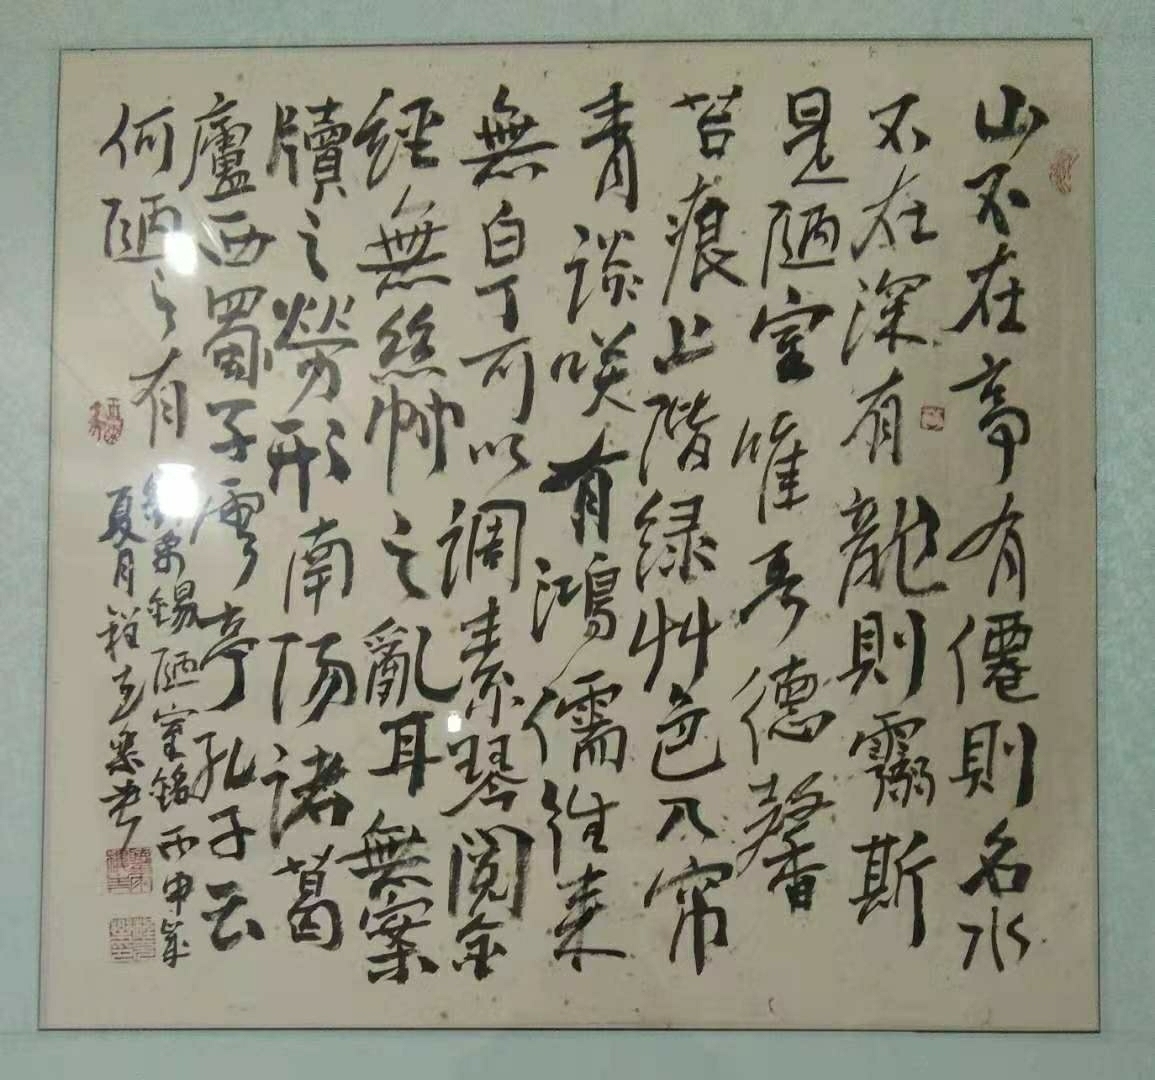 山不在高有僊則名水
不在深有龍則靈斯
是陋室惟吾德馨
苔痕上階緑艸色入帘
青談笑有鴻儒往来
無白丁可以調素琴閱金
經無絲竹之亂耳無案
牘之勞形南陽諸葛
廬西蜀子雲亭孔子云
何陋之有
劉禹錫陋室銘丙申年
夏月程